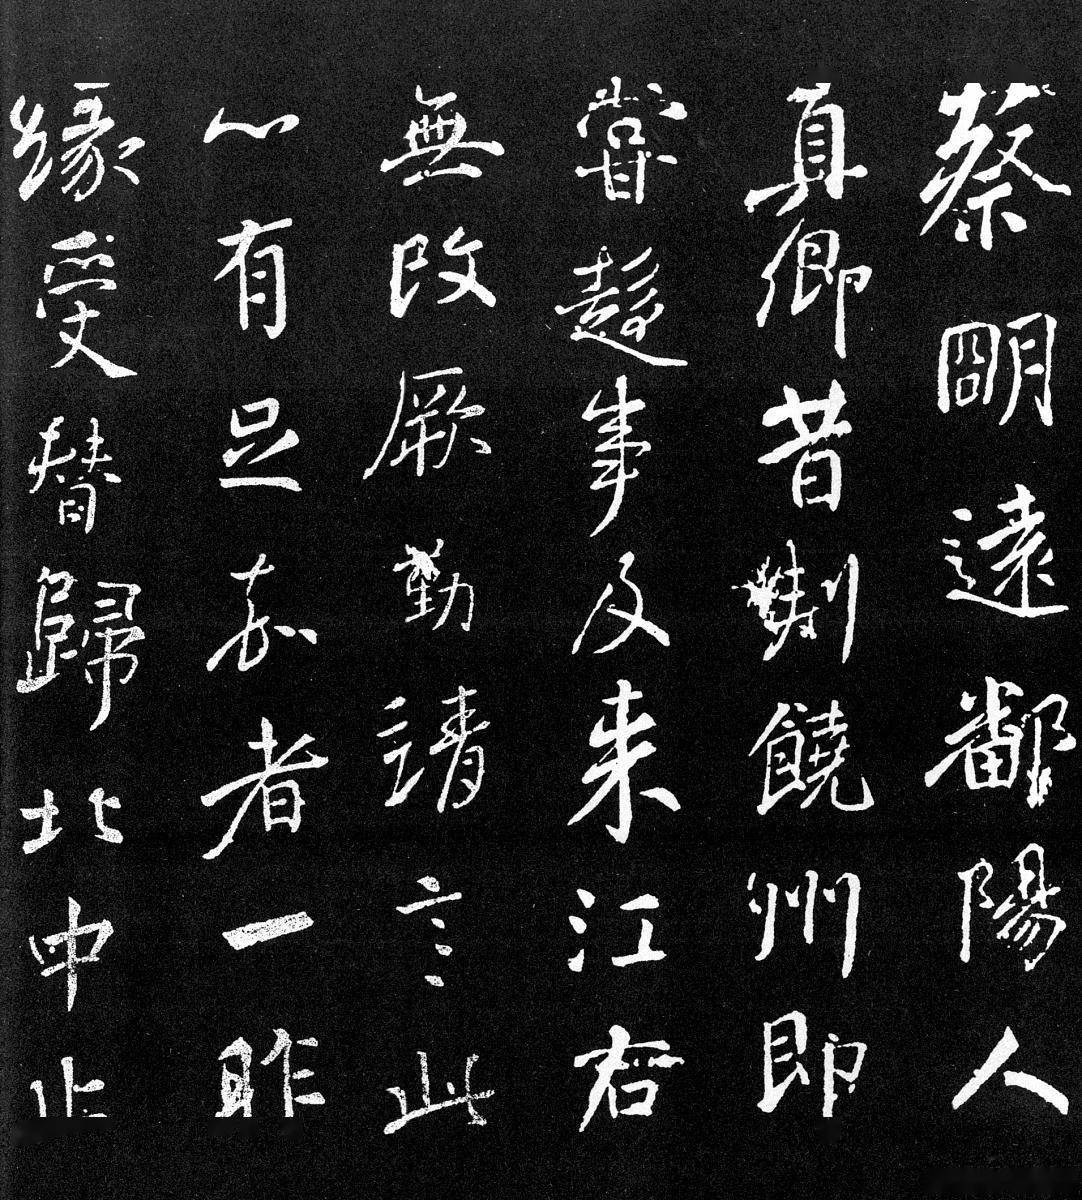 蔡明遠鄱陽人
真卿昔刺饒州即
甞趍事及来江右
無改厥勤靖言此
心有足嘉者一昨
緣受替歸北中止